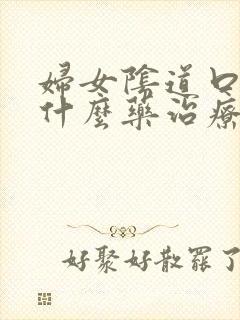 婦女陰道口
什麼藥治療
好聚好散罷了